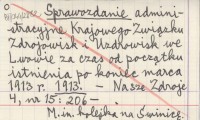 Sprawozdanie admini-
stracyjne Krajowego Związku
Zdrojowisk i Uzdrowisk we
Lwowie za czas od początku
istnienia po koniec marca
1913 r. 1913. — Nasze Zdroje
4, nr 15: 206 —
M. in. kolejka na Świnicę.